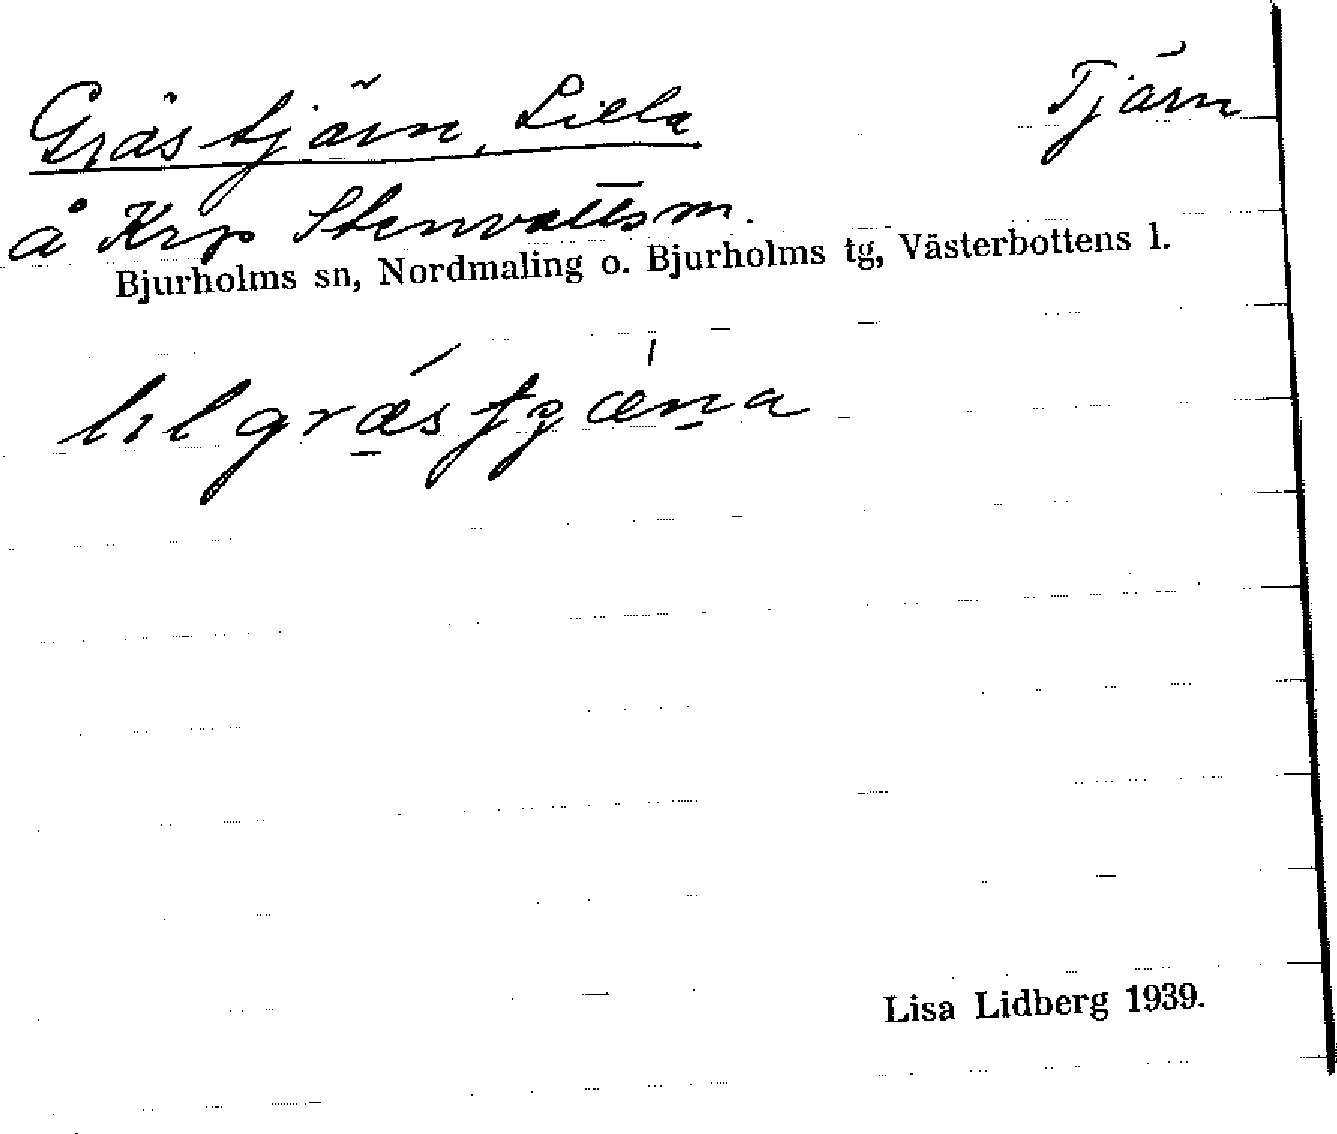 Grästjärn, Lilla Tjärn
å Krp Stenvattsm.
Bjurholms sn, Nordmaling o. Bjurholms tg, Västerbottens l.
Lisa Lidberg 1939.